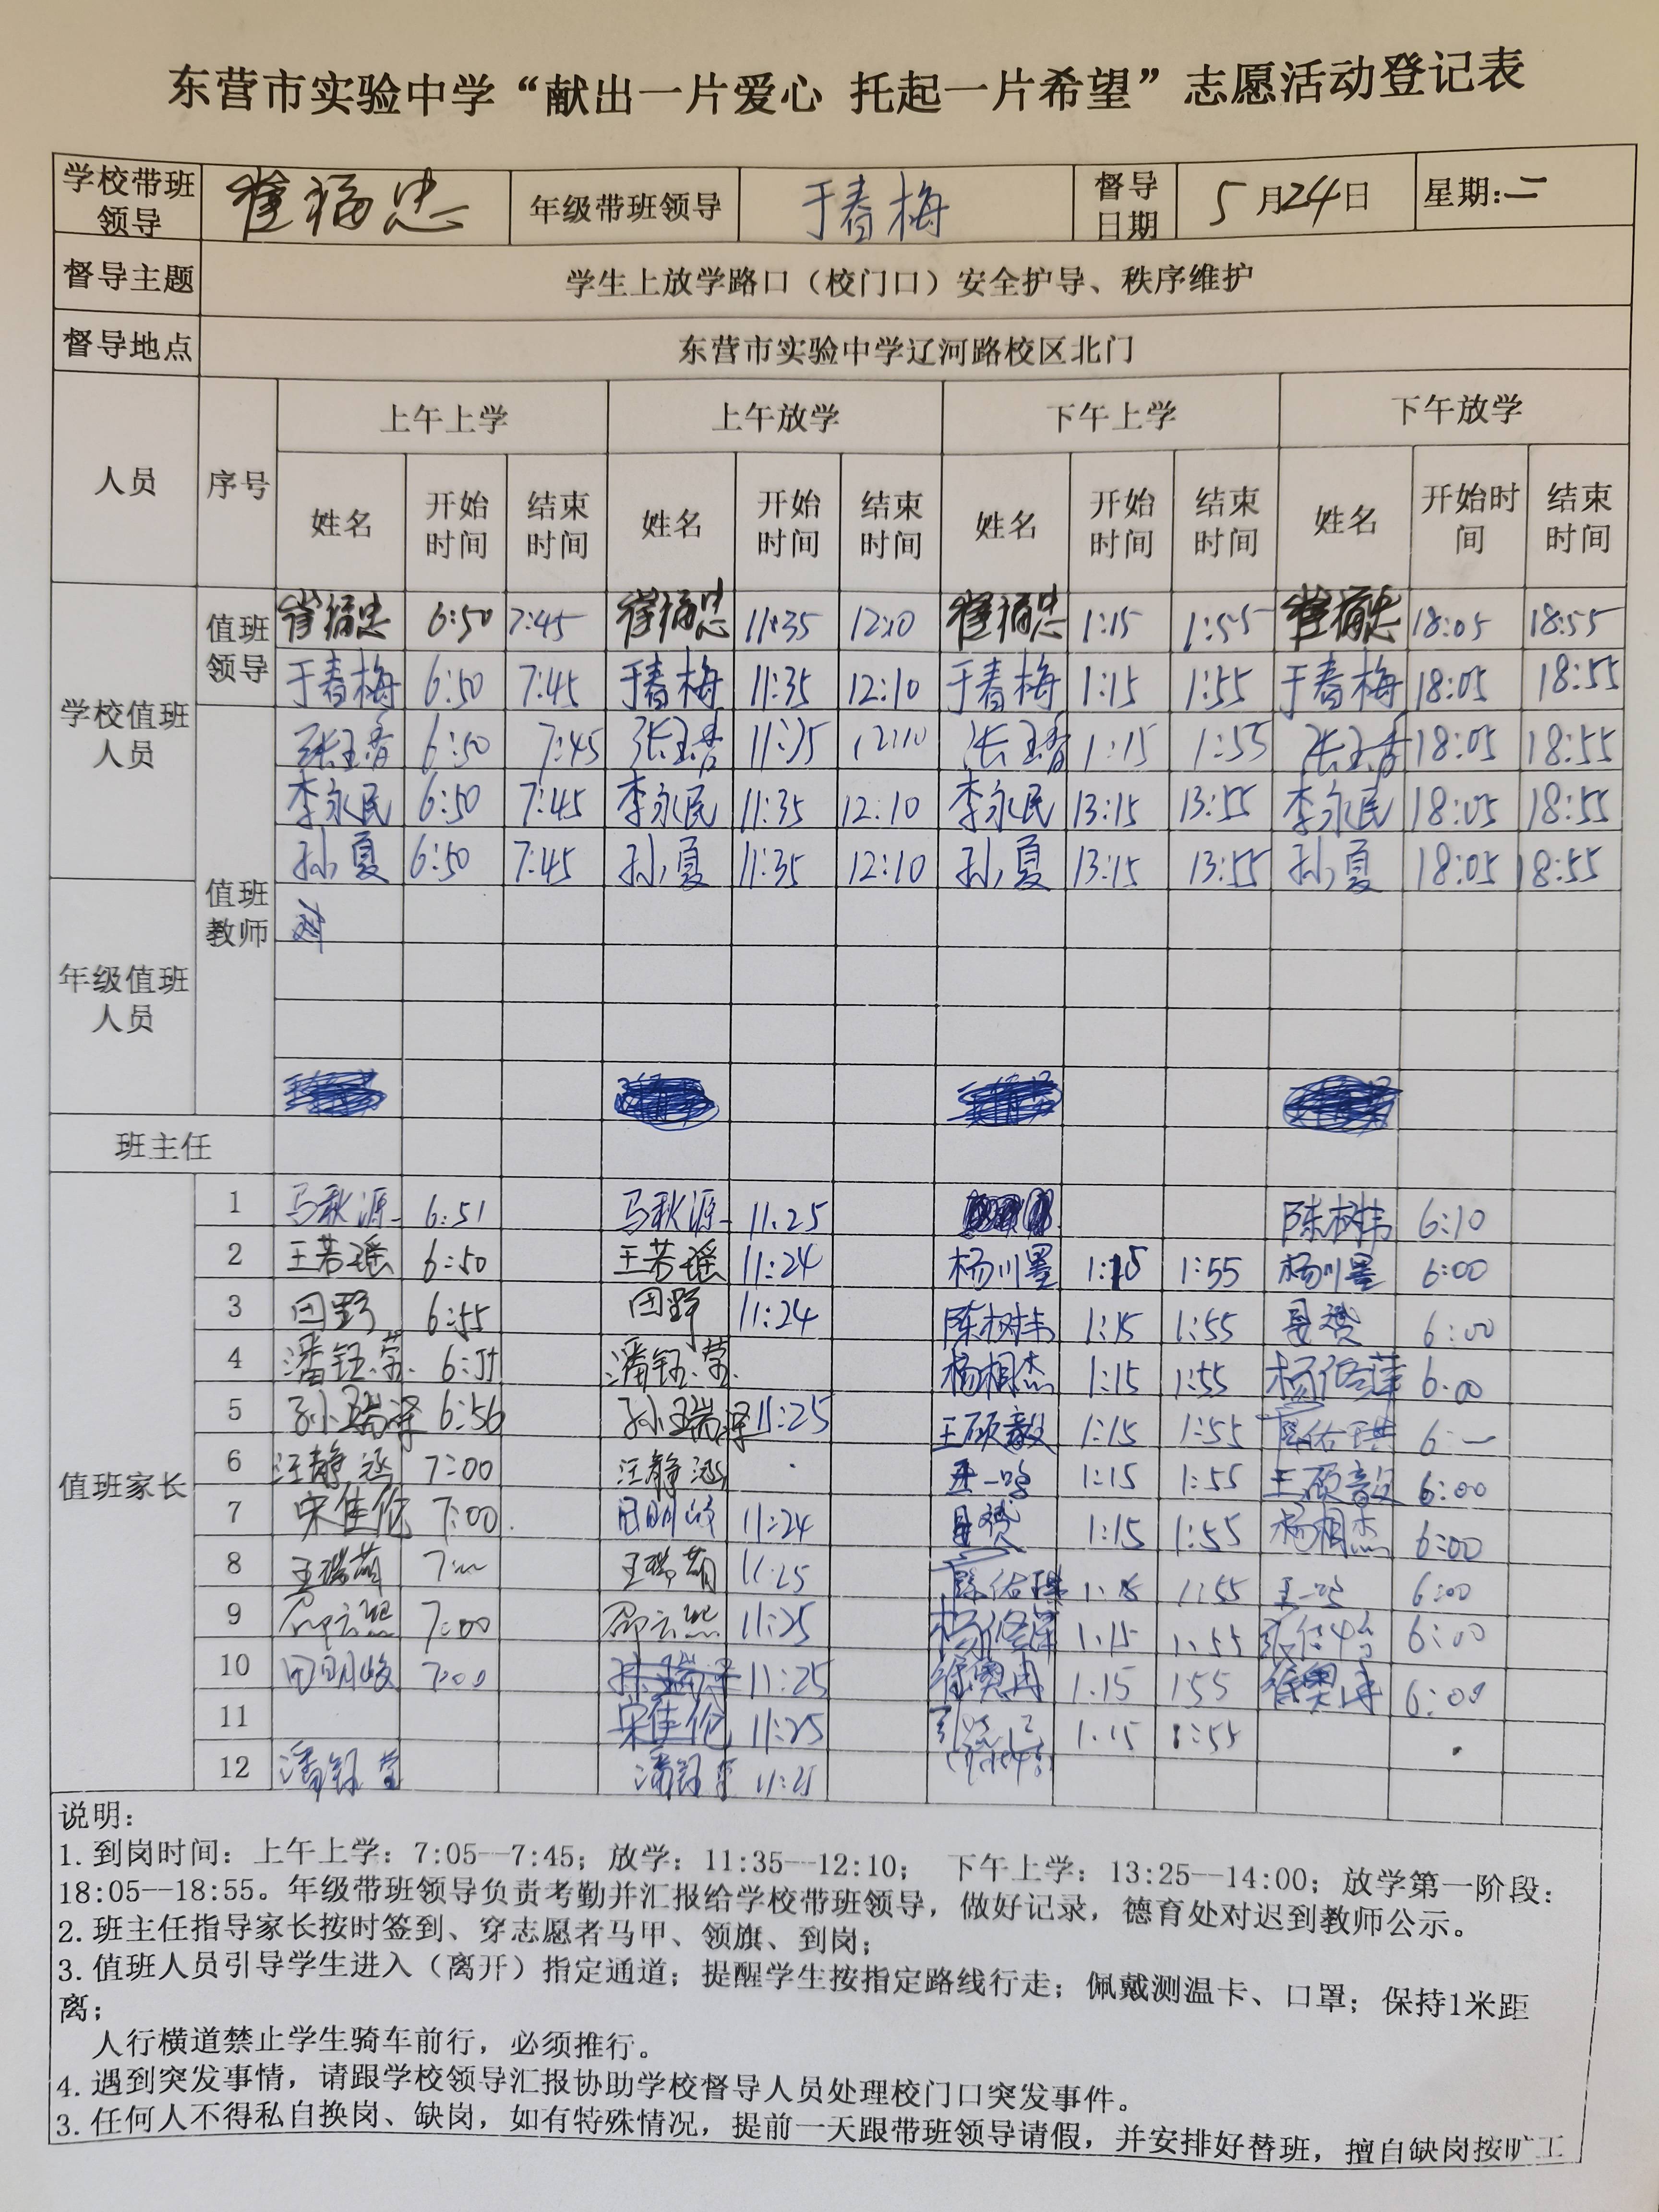 东营市实验中学“献出一片爱心 托起一片希望”志愿活动登记表
学校带班领导 崔福忠 年级带班领导 于春梅 督导日期 5月24日 星期:二
督导主题 学生上放学路口（校门口）安全护导、秩序维护
督导地点 东营市实验中学辽河路校区北门
人员 序号 上午上学 上午放学 下午上学 下午放学
姓名 开始时间 结束时间 姓名 开始时间 结束时间 姓名 开始时间 结束时间 姓名 开始时间 结束时间
学校值班人员
年级值班人员
值班领导
崔福忠 6:50 7:45 崔福忠 11:35 12:10 崔福忠 1:15 1:55 崔福忠 18:05 18:55
于春梅 6:50 7:45 于春梅 11:35 12:10 于春梅 1:15 1:55 于春梅 18:05 18:55
值班教师
张玉香 6:50 7:45 张玉香 11:35 12:10 张玉香 1:15 1:55 张玉香 18:05 18:55
李永民 6:50 7:45 李永民 11:35 12:10 李永民 13:15 13:55 李永民 18:05 18:55
孙夏 6:50 7:45 孙夏 11:35 12:10 孙夏 13:15 13:55 孙夏 18:05 18:55
班主任
值班家长
1 马秋源 6:51 马秋源 11.25 陈树韦 6:10
2 王若瑶 6:50 王若瑶 11:24 杨川墨 1:15 1:55 杨川墨 6:00
3 田野 6:55 田野 11:24 陈树韦 1:15 1:55 6:00
4 潘钰莹 6:55 潘钰莹 杨相杰 1:15 1:55 6:00
5 孙瑞泽 6:56 孙瑞泽 11:25 王硕毅 1:15 1:55
6 汪静涵 7:00 汪静涵 王一鸣 1:15 1:55 王硕毅 6:00
7 宋佳伦 7:00 田明 11:24 1:15 1:55 杨相杰 6:00
8 王瑞萌 王瑞萌 11:25 1:15 1:55 王一鸣 6:00
9 邵云熙 7:00 邵云熙 11:25 1:15 1:55 6:00
10 田明 7:00 孙瑞泽 11:25 徐奥冉 1.15 1 55 徐奥冉 6:00
11 宋佳伦 11:25 1.15 1:55
12 潘钰莹 潘钰莹 11:25
说明：
1. 到岗时间：上午上学：7:05--7:45；放学：11:35--12:10； 下午上学：13:25--14:00；放学第一阶段：
18:05--18:55。年级带班领导负责考勤并汇报给学校带班领导，做好记录，德育处对迟到教师公示。
2. 班主任指导家长按时签到、穿志愿者马甲、领旗、到岗；
3. 值班人员引导学生进入（离开）指定通道；提醒学生按指定路线行走；佩戴测温卡、口罩；保持1米距
离；
人行横道禁止学生骑车前行，必须推行。
4. 遇到突发事情，请跟学校领导汇报协助学校督导人员处理校门口突发事件。
3. 任何人不得私自换岗、缺岗，如有特殊情况，提前一天跟带班领导请假，并安排好替班，擅自缺岗按旷工